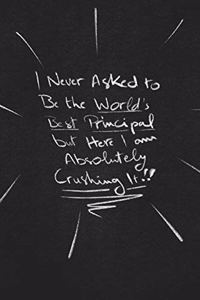 I Never Asked to
Be the World's
Best Principal
but Here I am
Absolutely
Crushing It!!